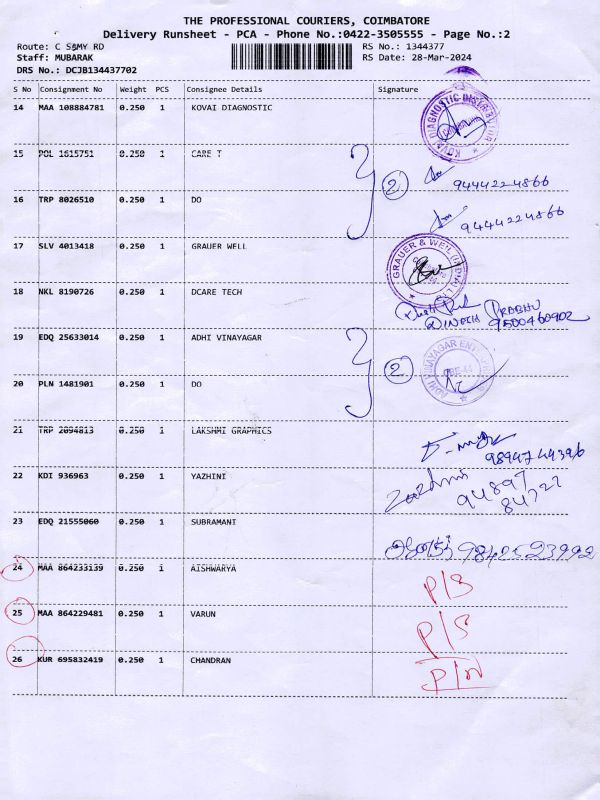 THE PROFESSIONAL COURIERS, COIMBATORE
Delivery Runsheet - PCA - Phone No.:0422-3505555 - Page No.:2
Route: C SAMY RD RS No.: 1344377
Staff: MUBARAK RS Date: 28-Mar-2024
DRS No.: DCJB134437702
S No Consignment No Weight PCS Consignee Details Signature
14 MAA 108884781 0.250 1 KOVAI DIAGNOSTIC
KOVAI DIAGNOSTIC
15 POL 1615751 0.250 1 CARE T
2 9444224866
16 TRP 8026510 0.250 1 DO
9444224866
17 SLV 4013418 0.250 1 GRAUER WELL
GRAUER & WEIL (INDIA)
18 NKL 8190726 0.250 1 DCARE TECH
DINESH PRABHU
9500460902
19 EDQ 25633014 0.250 1 ADHI VINAYAGAR
2 ADHI VINAYAGAR
20 PLN 1481901 0.250 1 DO
21 TRP 2094813 0.250 1 LAKSHMI GRAPHICS
22 KDI 936963 0.250 1 YAZHINI
94897
84722
23 EDQ 21555060 0.250 1 SUBRAMANI
24 MAA 864233139 0.250 1 AISHWARYA
25 MAA 864229481 0.250 1 VARUN
P/S
26 KUR 695832419 0.250 1 CHANDRAN
P/N